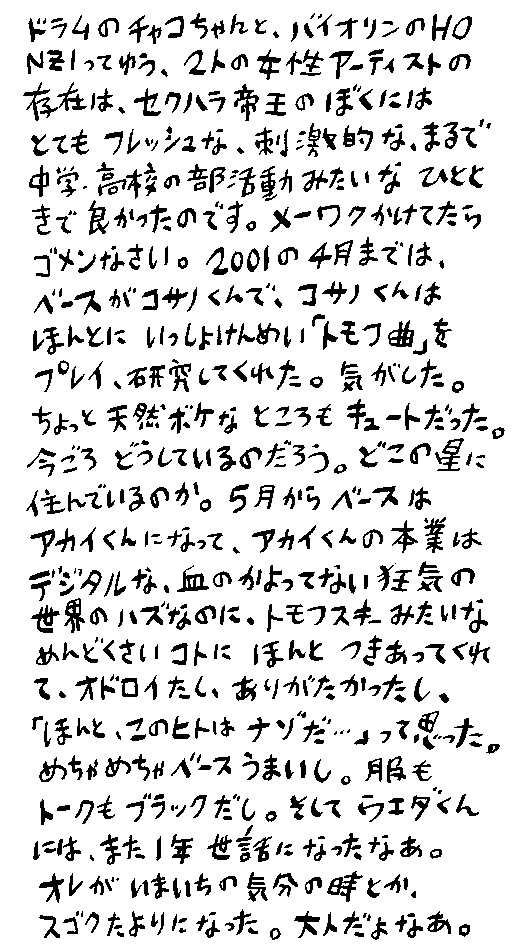 ドラムのチャコちゃんと、バイオリンのHO
NZIってゆう、2人の女性アーティストの
存在は、セクハラ帝王のぼくには
とても フレッシュな、刺激的な、まるで
中学・高校の部活動みたいな ひとと
きで良かったのです。メーワクかけてたら
ゴメンなさい。2001の4月までは、
ベースがコサノくんで、コサノくんは
ほんとに いっしょけんめい「トモフ曲」を
プレイ、研究してくれた。気がした。
ちょっと天然ボケな ところも キュートだった。
今ごろ どうしているのだろう。どこの星に
住んでいるのか。5月から ベースは
アカイくんになって、アカイくんの本業は
デジタルな、血のかよってない狂気の
世界のハズなのに、トモフスキーみたいな
めんどくさい コトに ほんと つきあってくれ
て、オドロイたし、ありがたかったし、
「ほんと、このヒトは ナゾだ…」って思った。
めちゃめちゃベースうまいし。服も
トークも ブラックだし。そして ウエダくん
には、また1年 世話になったなあ。
オレが いまいちの気分の時とか、
スゴクたよりになった。大人だよなあ。